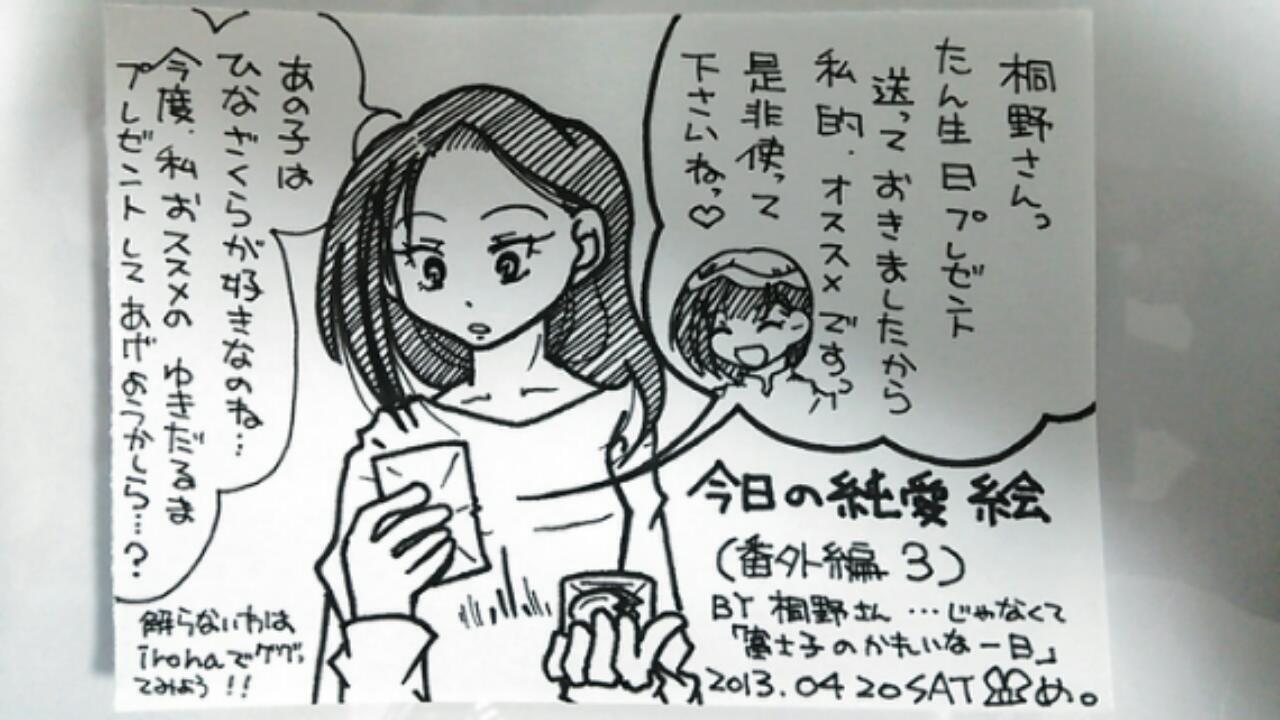 桐野さんっ
たん生日プレゼント
送っておきましたから
私的.オススメですっ
是非使って
下さいねっ♡
あの子は
ひなざくらが好きなのね…
今度.私おススメの ゆきだるま
プレゼントしてあげようかしら…?
今日の純愛絵
(番外編 3)
BY 桐野さん …じゃなくて
「富士子のかれいな一日」
2013.04 20 SAT め。
解らないわは
irohaでググっ
てみよう!!